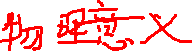 物理意义